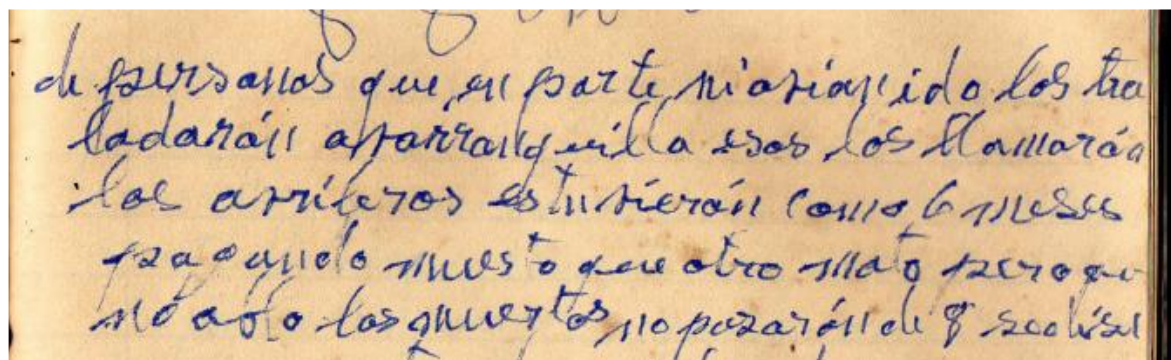 de personas que en parte ni avian ido los tra
ladarán a barranquilla esos los llamarón
los arriferos estubierón como 6 meses
pagando muerto que otro mato pero
los muertos no pasarón de 8